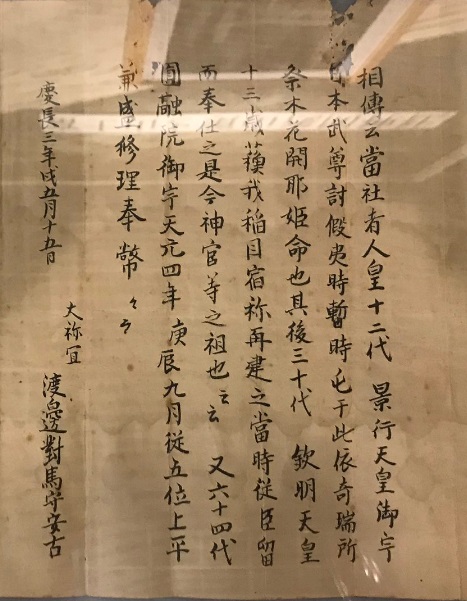 相傳云當社者人皇十二代　景行天皇御宇
日本武尊討假夷時暫時屯于此依奇瑞所
祭木花開耶姫命也其後三十代　欽明天皇
十三歳蘓我稲目宿祢再建之當時従臣留
而奉仕之是今神官等之祖也云云　又六十四代
圓融院御宇天元四年　庚辰九月従五位上平
兼盛修理奉幣
慶長三年戌五月十五日
大祢宜　渡邊對馬守安古